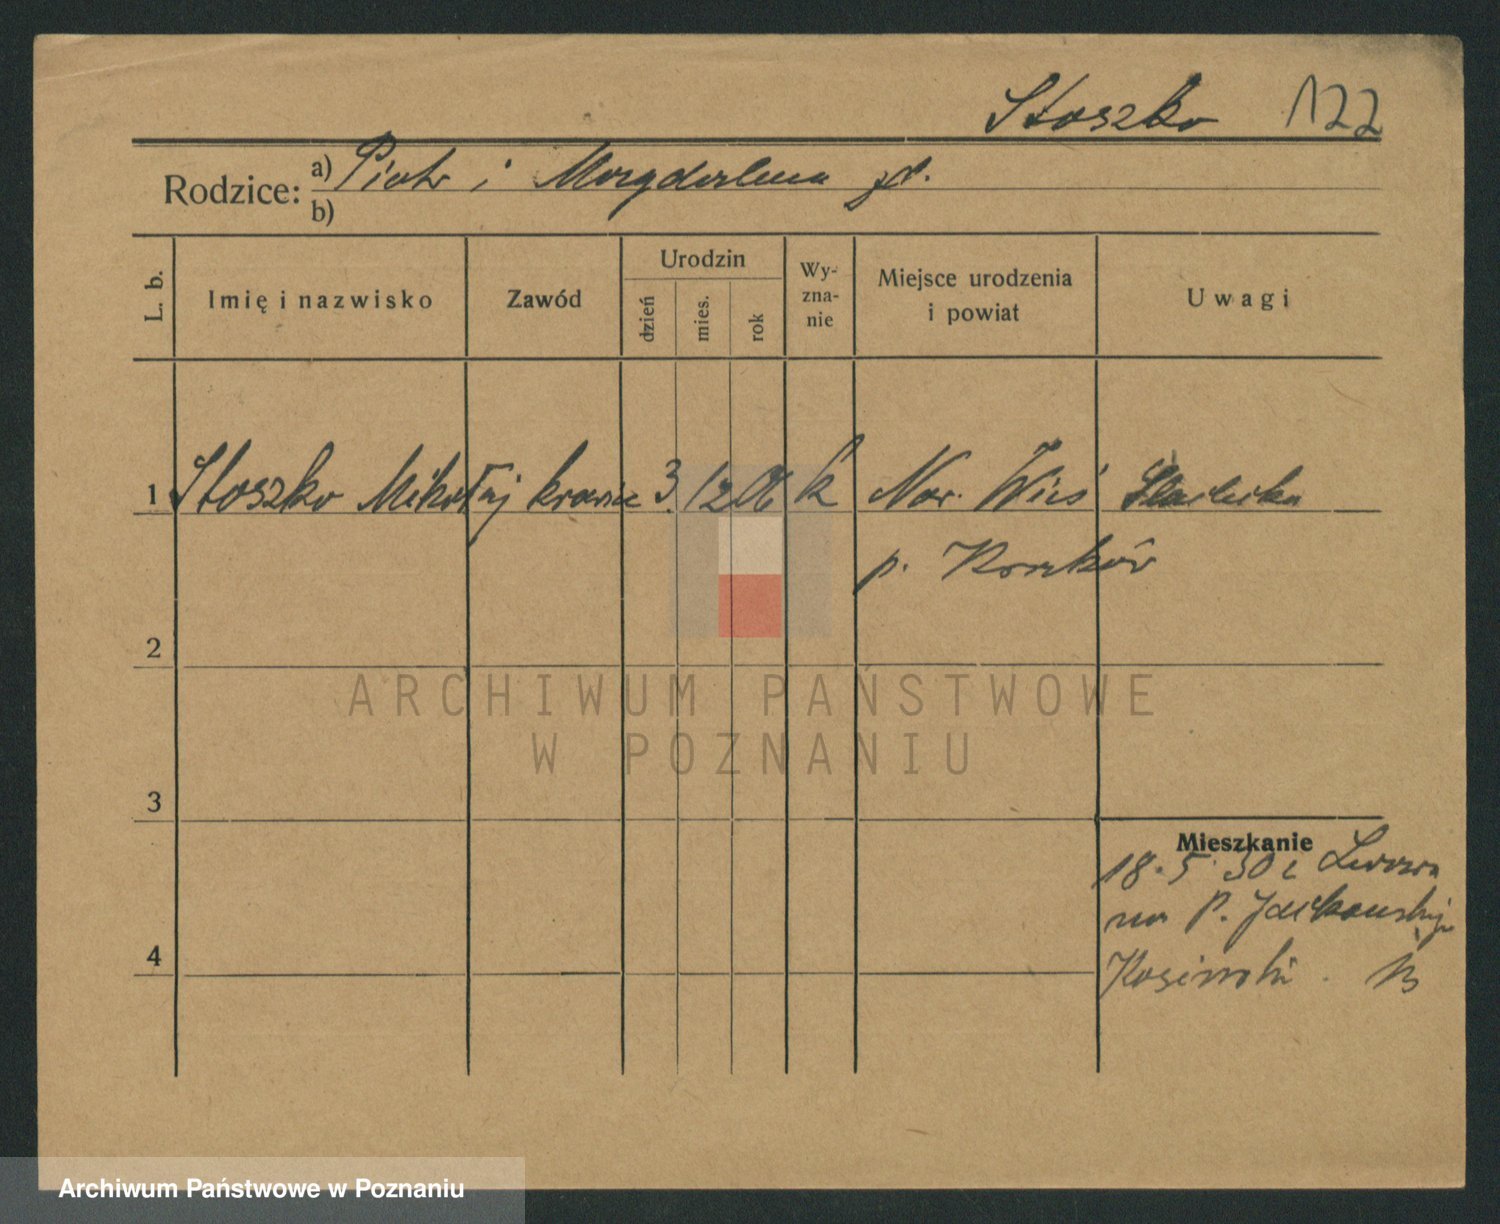 Stoszko 122
Rodzice: a) Piotr i Magdalena zd.
b)
L. b. Imię i nazwisko Zawód Urodzin dzień mies. rok Wy-zna-nie Miejsce urodzenia i powiat Uwagi
1 Stoszko Mikołaj krawiec 3. 12 06 k Now. Wieś
p.
2
ARCHIWUM PAŃSTWOWE
W POZNANIU
3
Mieszkanie
18.5.30 z Lwowa
na P. Jackowskiego
4
Kosiński.
Archiwum Państwowe w Poznaniu